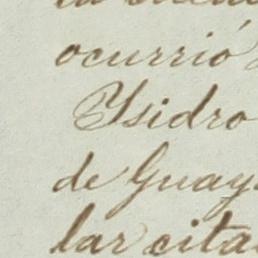 ocurrió
Isidro
de Guay
lar cita